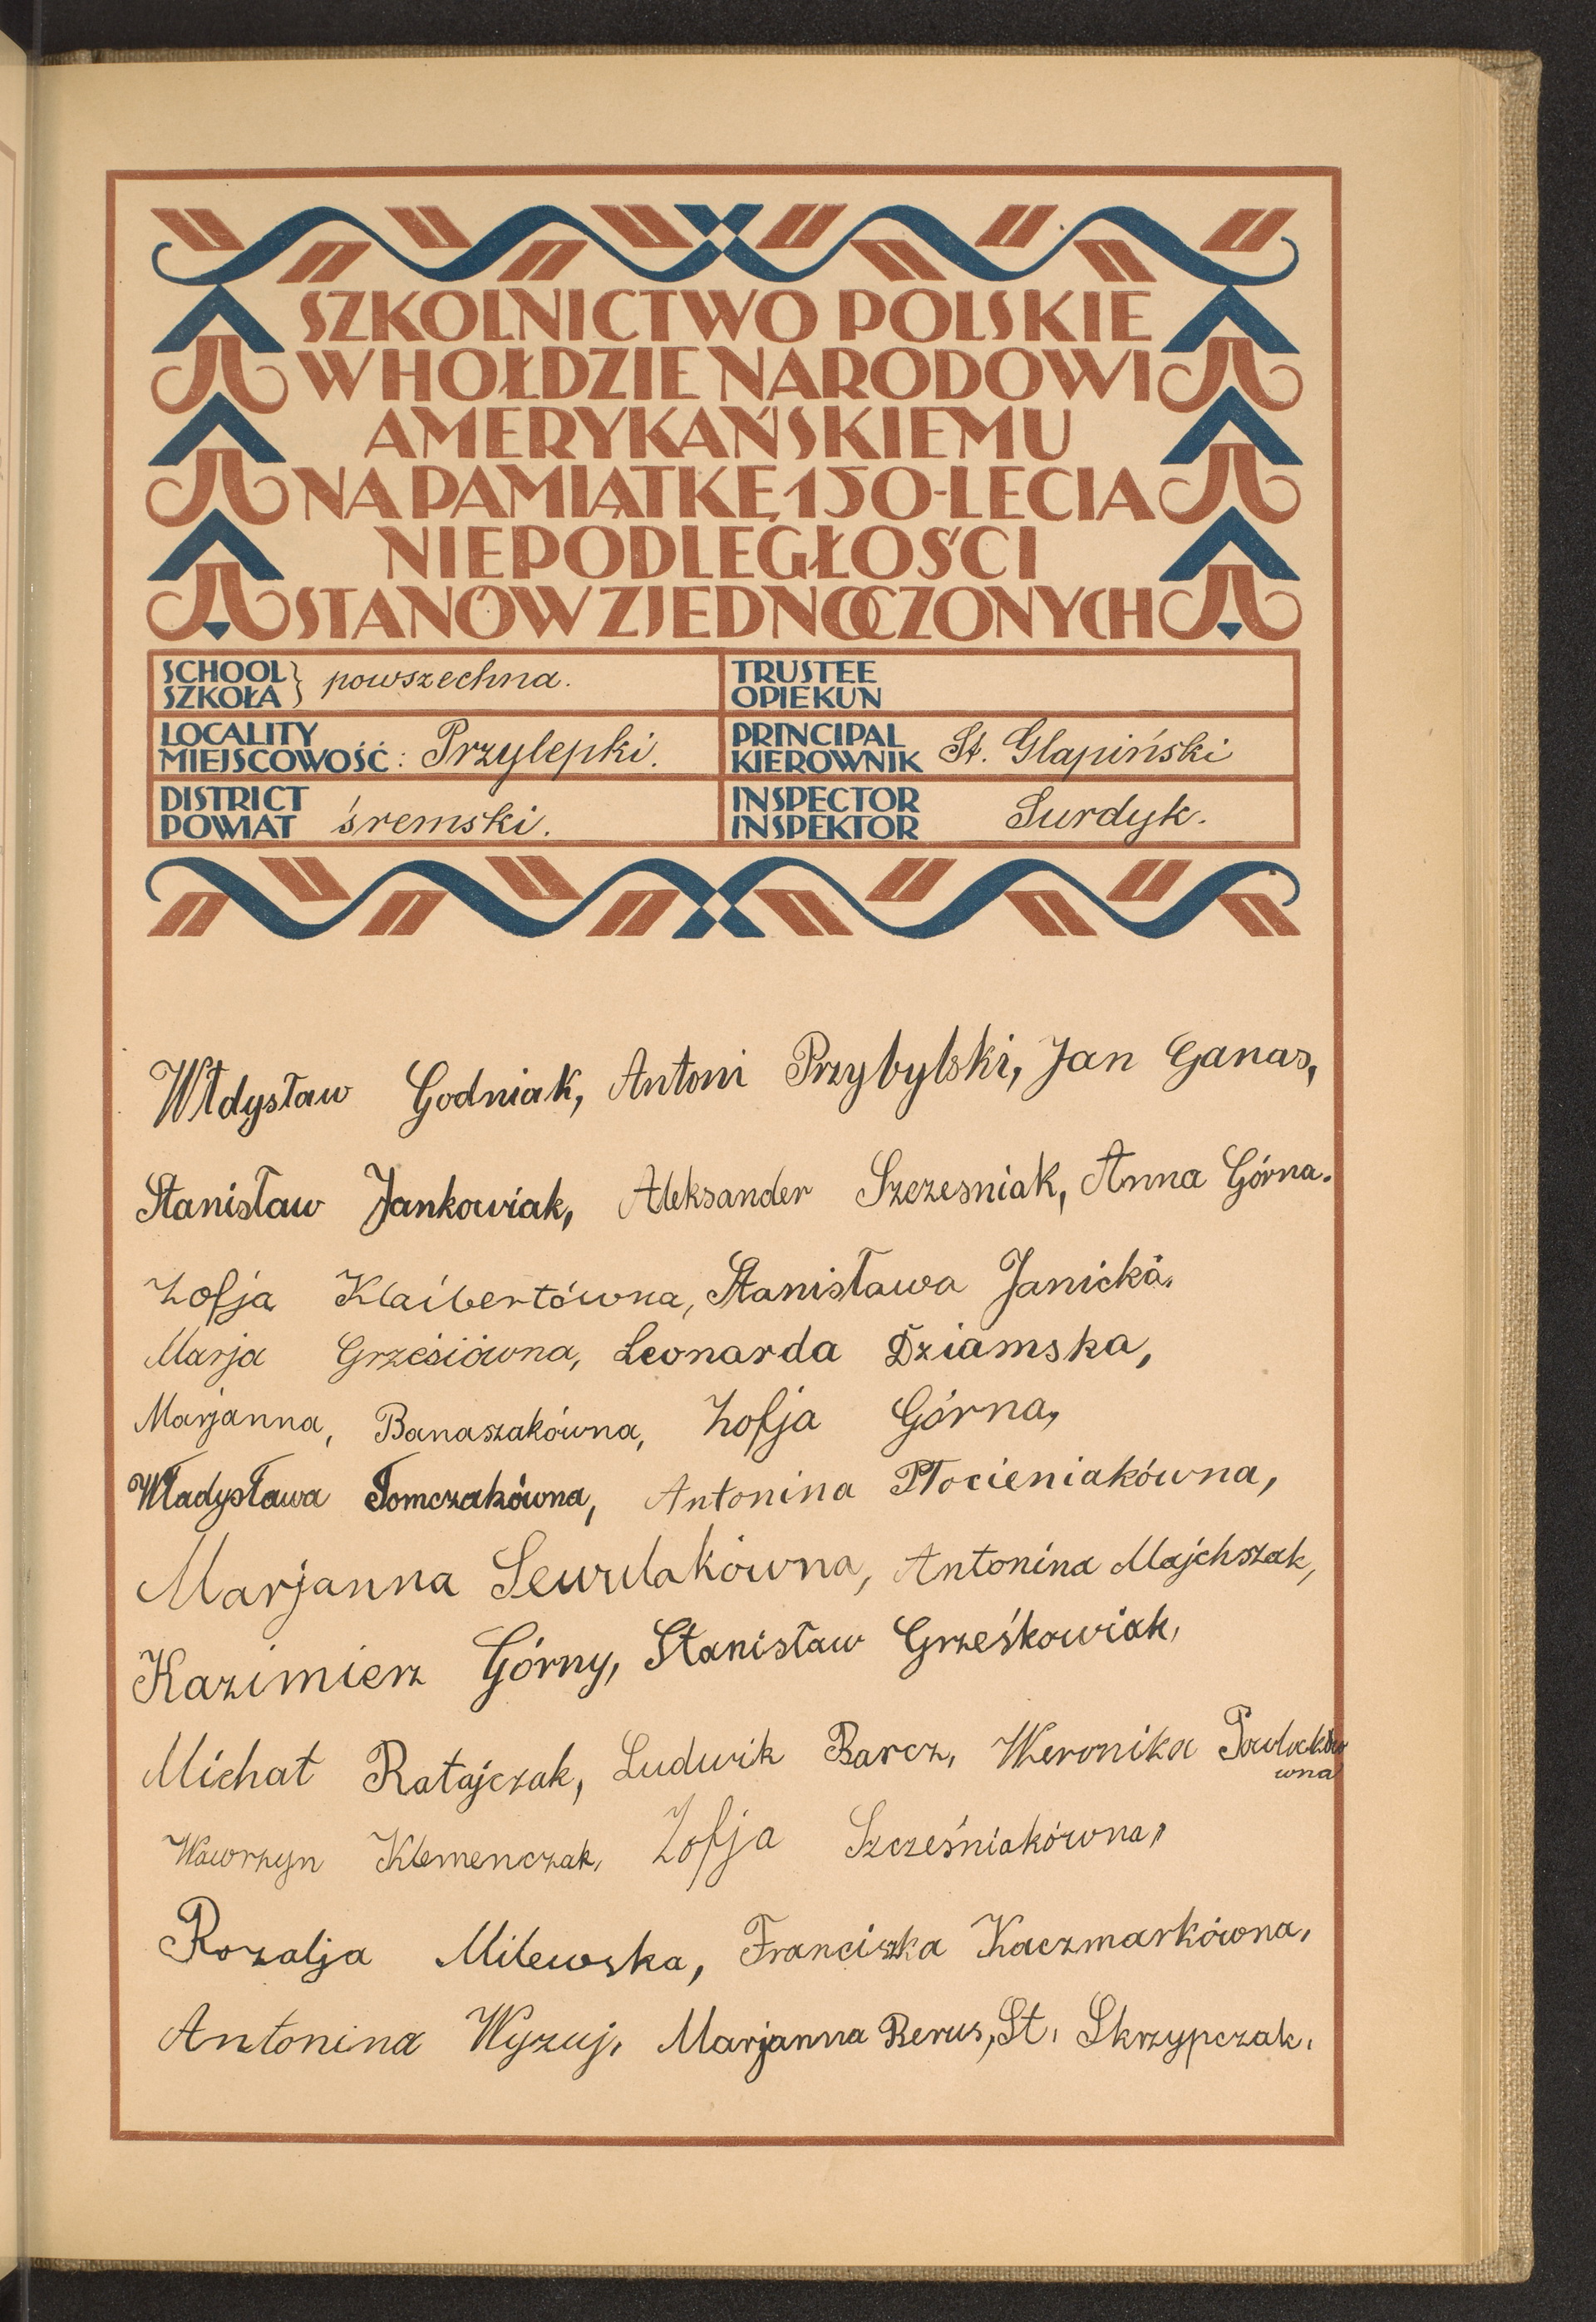 SZKOLNICTWO POLSKIE
W HOŁDZIE NARODOWI
AMERYKAŃSKIEMU
NA PAMIĄTKĘ 150-LECIA
NIEPODLEGŁOŚCI
STANÓW ZJEDNOCZONYCH
SCHOOL
SZKOŁA } powszechna.
TRUSTEE
OPIEKUN
LOCALITY
MIEJSCOWOŚĆ : Przylepki.
PRINCIPAL
KIEROWNIK St. Glapiński
DISTRICT
POWIAT śremski.
INSPECTOR
INSPEKTOR Surdyk.
Włdysław Godniak, Antoni Przybylski, Jan Ganas,
Stanisław Jankowiak, Aleksander Szczesniak, Anna Górna.
Zofja Klaibertówna, Stanisława Janicka.
Marja Grześiówna, Leonarda Dziamska,
Marjanna, Banaszakówna, Zofja Górna,
Władysława Tomczakówna, Antonina Płocieniakówna,
Marjanna Sewulakówna, Antonina Majchszak,
Kazimierz Górny, Stanisław Grześkowiak,
Michał Ratajczak, Ludwik Barcz, Weronika
wna
Wawrzyn Klemenczak, Zofja Szcześniakówna,
Rozalja Milewska, Franciszka Kaczmarkówna,
Antonina Wyzuj, Marjanna Berus, St. Skrzypczak.